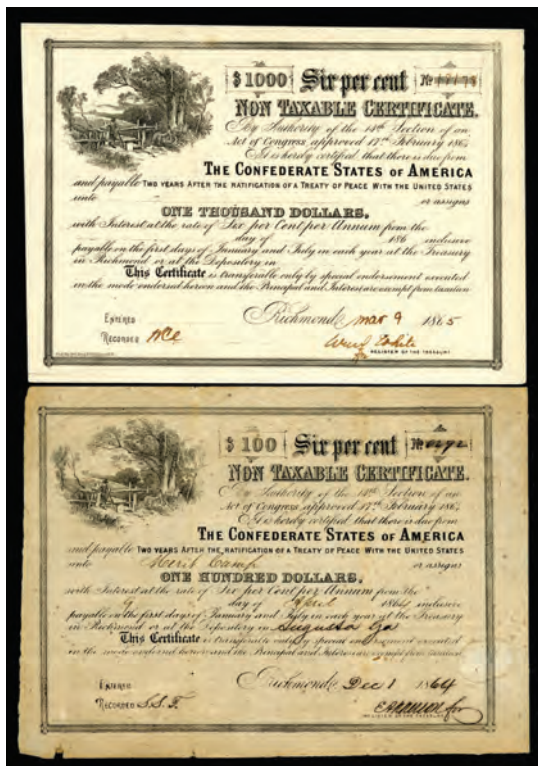 $ 1000 Six per cent No
NON TAXABLE CERTIFICATE.
By Authority of the 14th Section of an
Act of Congress, approved 17th February 1864
It is hereby certified, that there is due from
THE CONFEDERATE STATES OF AMERICA
and payable TWO YEARS AFTER THE RATIFICATION OF A TREATY OF PEACE WITH THE UNITED STATES
unto or assigns
ONE THOUSAND DOLLARS,
with Interest at the rate of Six per Cent per Annum from the
day of 186 inclusive
payable on the first days of January and July in each year at the Treasury
in Richmond or at the Depository in
This Certificate is transferable only by special endorsement executed
in the mode endorsed hereon and the Principal and Interest are exempt from taxation
ENTERED Richmond, Mar 9 1865
RECORDED
REGISTER OF THE TREASURY
$ 100 Six per cent No
NON TAXABLE CERTIFICATE.
By Authority of the 14th Section of an
Act of Congress, approved 17th February 1864
It is hereby certified, that there is due from
THE CONFEDERATE STATES OF AMERICA
and payable TWO YEARS AFTER THE RATIFICATION OF A TREATY OF PEACE WITH THE UNITED STATES
unto Merit Camp or assigns
ONE HUNDRED DOLLARS,
with Interest at the rate of Six per Cent per Annum from the
9 day of April 1864 inclusive
payable on the first days of January and July in each year at the Treasury
in Richmond or at the Depository in Augusta Ga
This Certificate is transferable only by special endorsement executed
in the mode endorsed hereon and the Principal and Interest are exempt from taxation
ENTERED Richmond, Dec 1 1864
RECORDED S.S.F.
REGISTER OF THE TREASURY